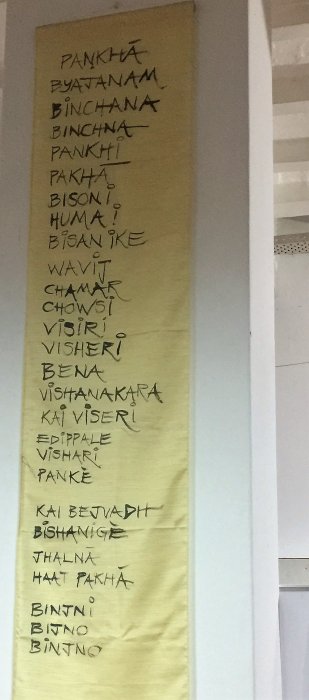 PAṆKHĀ
BYAJANAM
BINCHANA
BINCHNA
PANKHI
PAKHĀ
BISONI
HUMAI
BISANIKE
WAVIJ
CHAMAR
CHOWSI
VISIRI
VISHERI
BENA
VISHANAKARA
KAI VISERI
EDIPPALE
VISHARI
PANKÈ
KAI BEJVADH
BISHANIGÈ
JHALNĀ
HAAT PAKHĀ
BINJNI
BIJNO
BINJNO